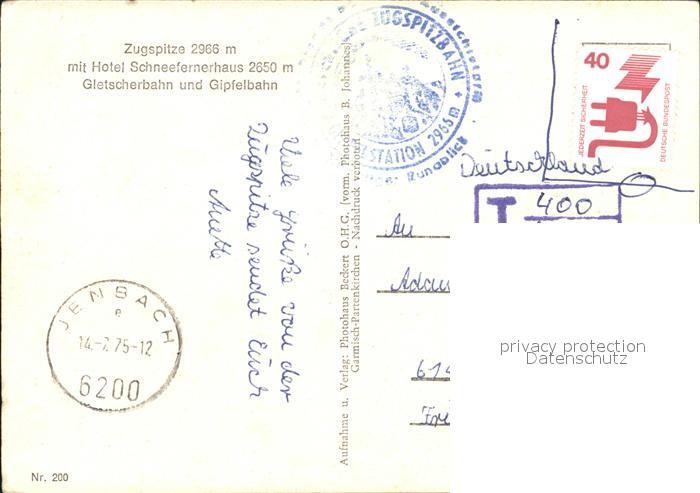 Zugspitze 2966 m
mit Hotel Schneefernerhaus 2650 m
Gletscherbahn und Gipfelbahn
ZUGSPITZBAHN
STATION 2965 m
Rundblick
40
JEDERZEIT SICHERHEIT
DEUTSCHE BUNDESPOST
Deutschland
T 400
Viele Grüße von der
Zugspitze sendet Euch
Anette
Aufnahme u. Verlag: Photohaus Beckert O.H.G. (vorm. Photohaus B. Johannes)
Garmisch-Partenkirchen - Nachdruck verboten
An
JENBACH
e
14.-7.75-12
6200
privacy protection
Datenschutz
Nr. 200